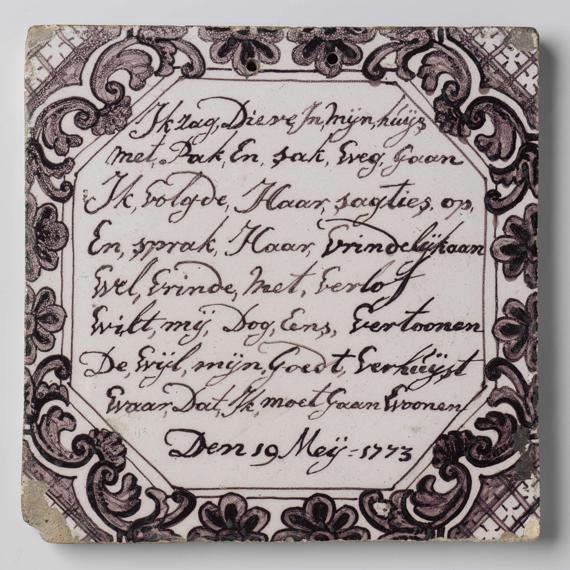 Ik zag, Dieve, In, mijn, huijs
met, Pak, En, sak, Weg, Gaan
Ik, volgde, Haar, sagties, op,
En, sprak, Haar, Vrindelijk aan
Wel, Vrinde, Met, Verlof
Wilt, mij, Dog, Eens, Vertoonen
De, Wijl, mijn, Goedt, Verhuijst
Waar, Dat, Ik, moet Gaan Woonen
Den 19 Meij = 1773